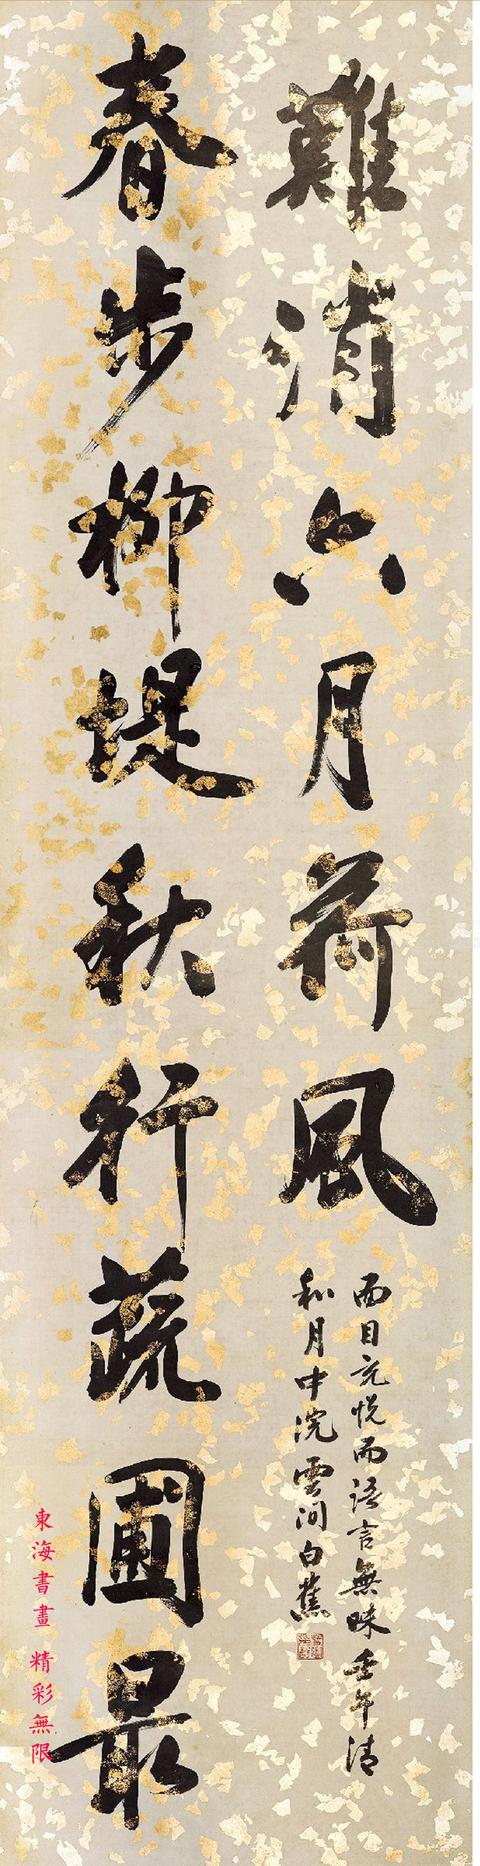 春步柳堤秋行蔬圃最
難消六月荷風
面目充悅而語言無味壬午清
和月中浣雲間白蕉
東海書畫 精彩無限